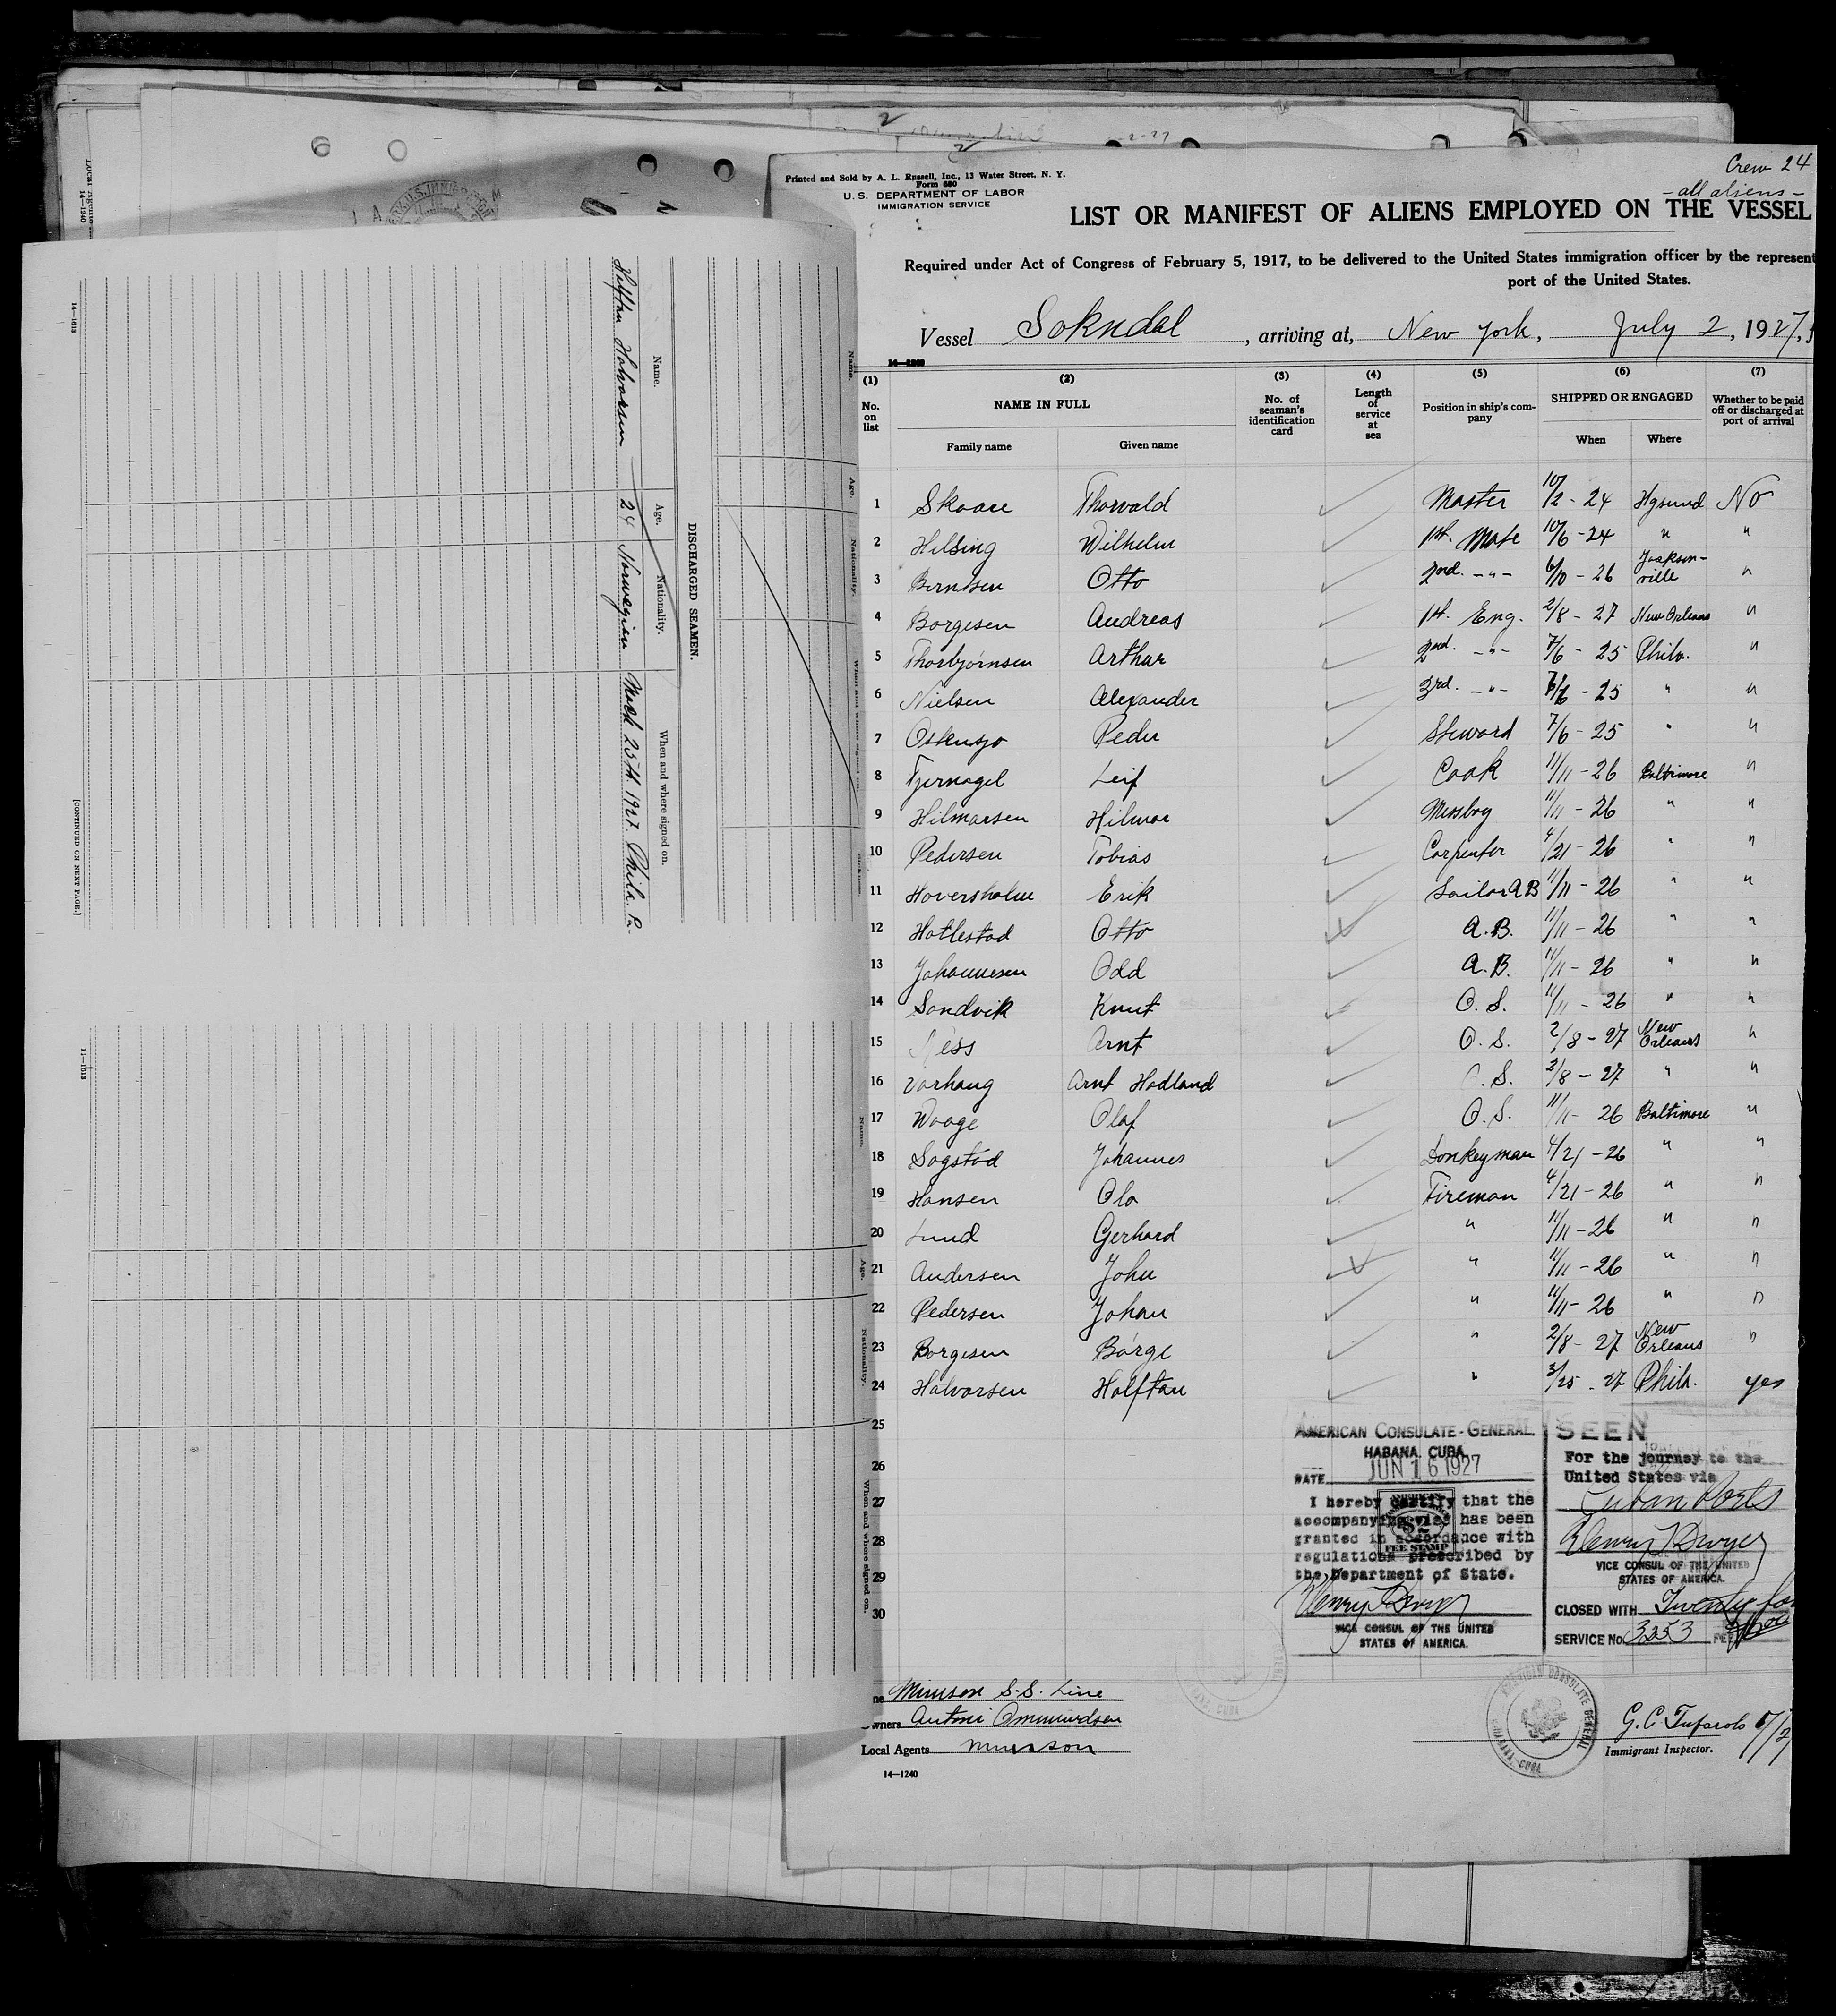 Crew 24
- all aliens -
Printed and Sold by A. L. Russell, Inc., 13 Water Street, N. Y.
Form 680
U. S. DEPARTMENT OF LABOR
IMMIGRATION SERVICE
LIST OR MANIFEST OF ALIENS EMPLOYED ON THE VESSEL
Required under Act of Congress of February 5, 1917, to be delivered to the United States immigration officer by the represent
port of the United States.
Vessel Sokndal, arriving at, New York, July 2, 1927,
14—1240
(1) (2) (3) (4) (5) (6) (7)
No. on list NAME IN FULL No. of seaman's identification card Length of service at sea Position in ship's company SHIPPED OR ENGAGED Whether to be paid off or discharged at port of arrival
Family name Given name When Where
1 Skaare Thorvald Master 10/2 - 24 Hgsund No
2 Hilding Wilhelm 1st. Mate 10/6 - 24 " "
3 Berntsen Otto 2nd. -"- 6/10 - 26 Jackson-ville "
4 Borgesen Andreas 1st. Eng. 2/8 - 27 New Orleans "
5 Thorbjörnsen Arthur 2nd. -"- 7/6 - 25 Phila. "
6 Nielsen Alexander 3rd. -"- 7/6 - 25 " "
7 Peder Steward 7/6 - 25 " "
8 Tjernagel Leif Cook 11/11 - 26 Baltimore "
9 Hilmarsen Hilmar Messboy 11/11 - 26 " "
10 Pedersen Tobias Carpenter 4/21 - 26 " "
11 Hoversholm Erik Sailor AB 11/11 - 26 " "
12 Hatlestad Otto A.B. 11/11 - 26 " "
13 Johannesen Odd A.B. 11/11 - 26 " "
14 Sandvik Knut O. S. 11/11 - 26 " "
15 Ness Arnt O. S. 2/8 - 27 New Orleans "
16 Varhaug Arnt Hodland O. S. 2/8 - 27 " "
17 Waage Olaf O. S. 11/11 - 26 Baltimore "
18 Sagstad Johannes Donkeyman 4/21 - 26 " "
19 Hansen Ola Fireman 4/21 - 26 " "
20 Lund Gerhard " 11/11 - 26 " "
21 Andersen John " 11/11 - 26 " "
22 Pedersen Johan " 11/11 - 26 " "
23 Borgesen Börge " 2/8 - 27 New Orleans "
24 Halvorsen Halftan " 3/25 - 27 Phila. yes
25
26
27
28
29
30
AMERICAN CONSULATE-GENERAL
HABANA, CUBA
DATE JUN 16 1927
I hereby certify that the
accompanying visa has been
granted in accordance with
regulations prescribed by
the Department of State.
$2
FEE STAMP
Henry T Dwyer
VICE CONSUL OF THE UNITED
STATES OF AMERICA.
SEEN
For the journey to the
United States via
Cuban Ports
Henry T Dwyer
VICE CONSUL OF THE UNITED
STATES OF AMERICA.
CLOSED WITH Twenty fo
SERVICE No. 3253
Munson S.S. Line
Owners
Local Agents Munson
14—1240
AMERICAN CONSULATE GENERAL
HABANA, CUBA
Immigrant Inspector.
DISCHARGED SEAMEN.
Name. Age. Nationality. When and where signed on.
Halftan Halvorsen 24 Norwegian March 25th 1927. Phila. Pa.
Name. Age. Nationality. When and where signed on.
[CONTINUED ON NEXT PAGE.]
14—1613
11—1613
14—1240